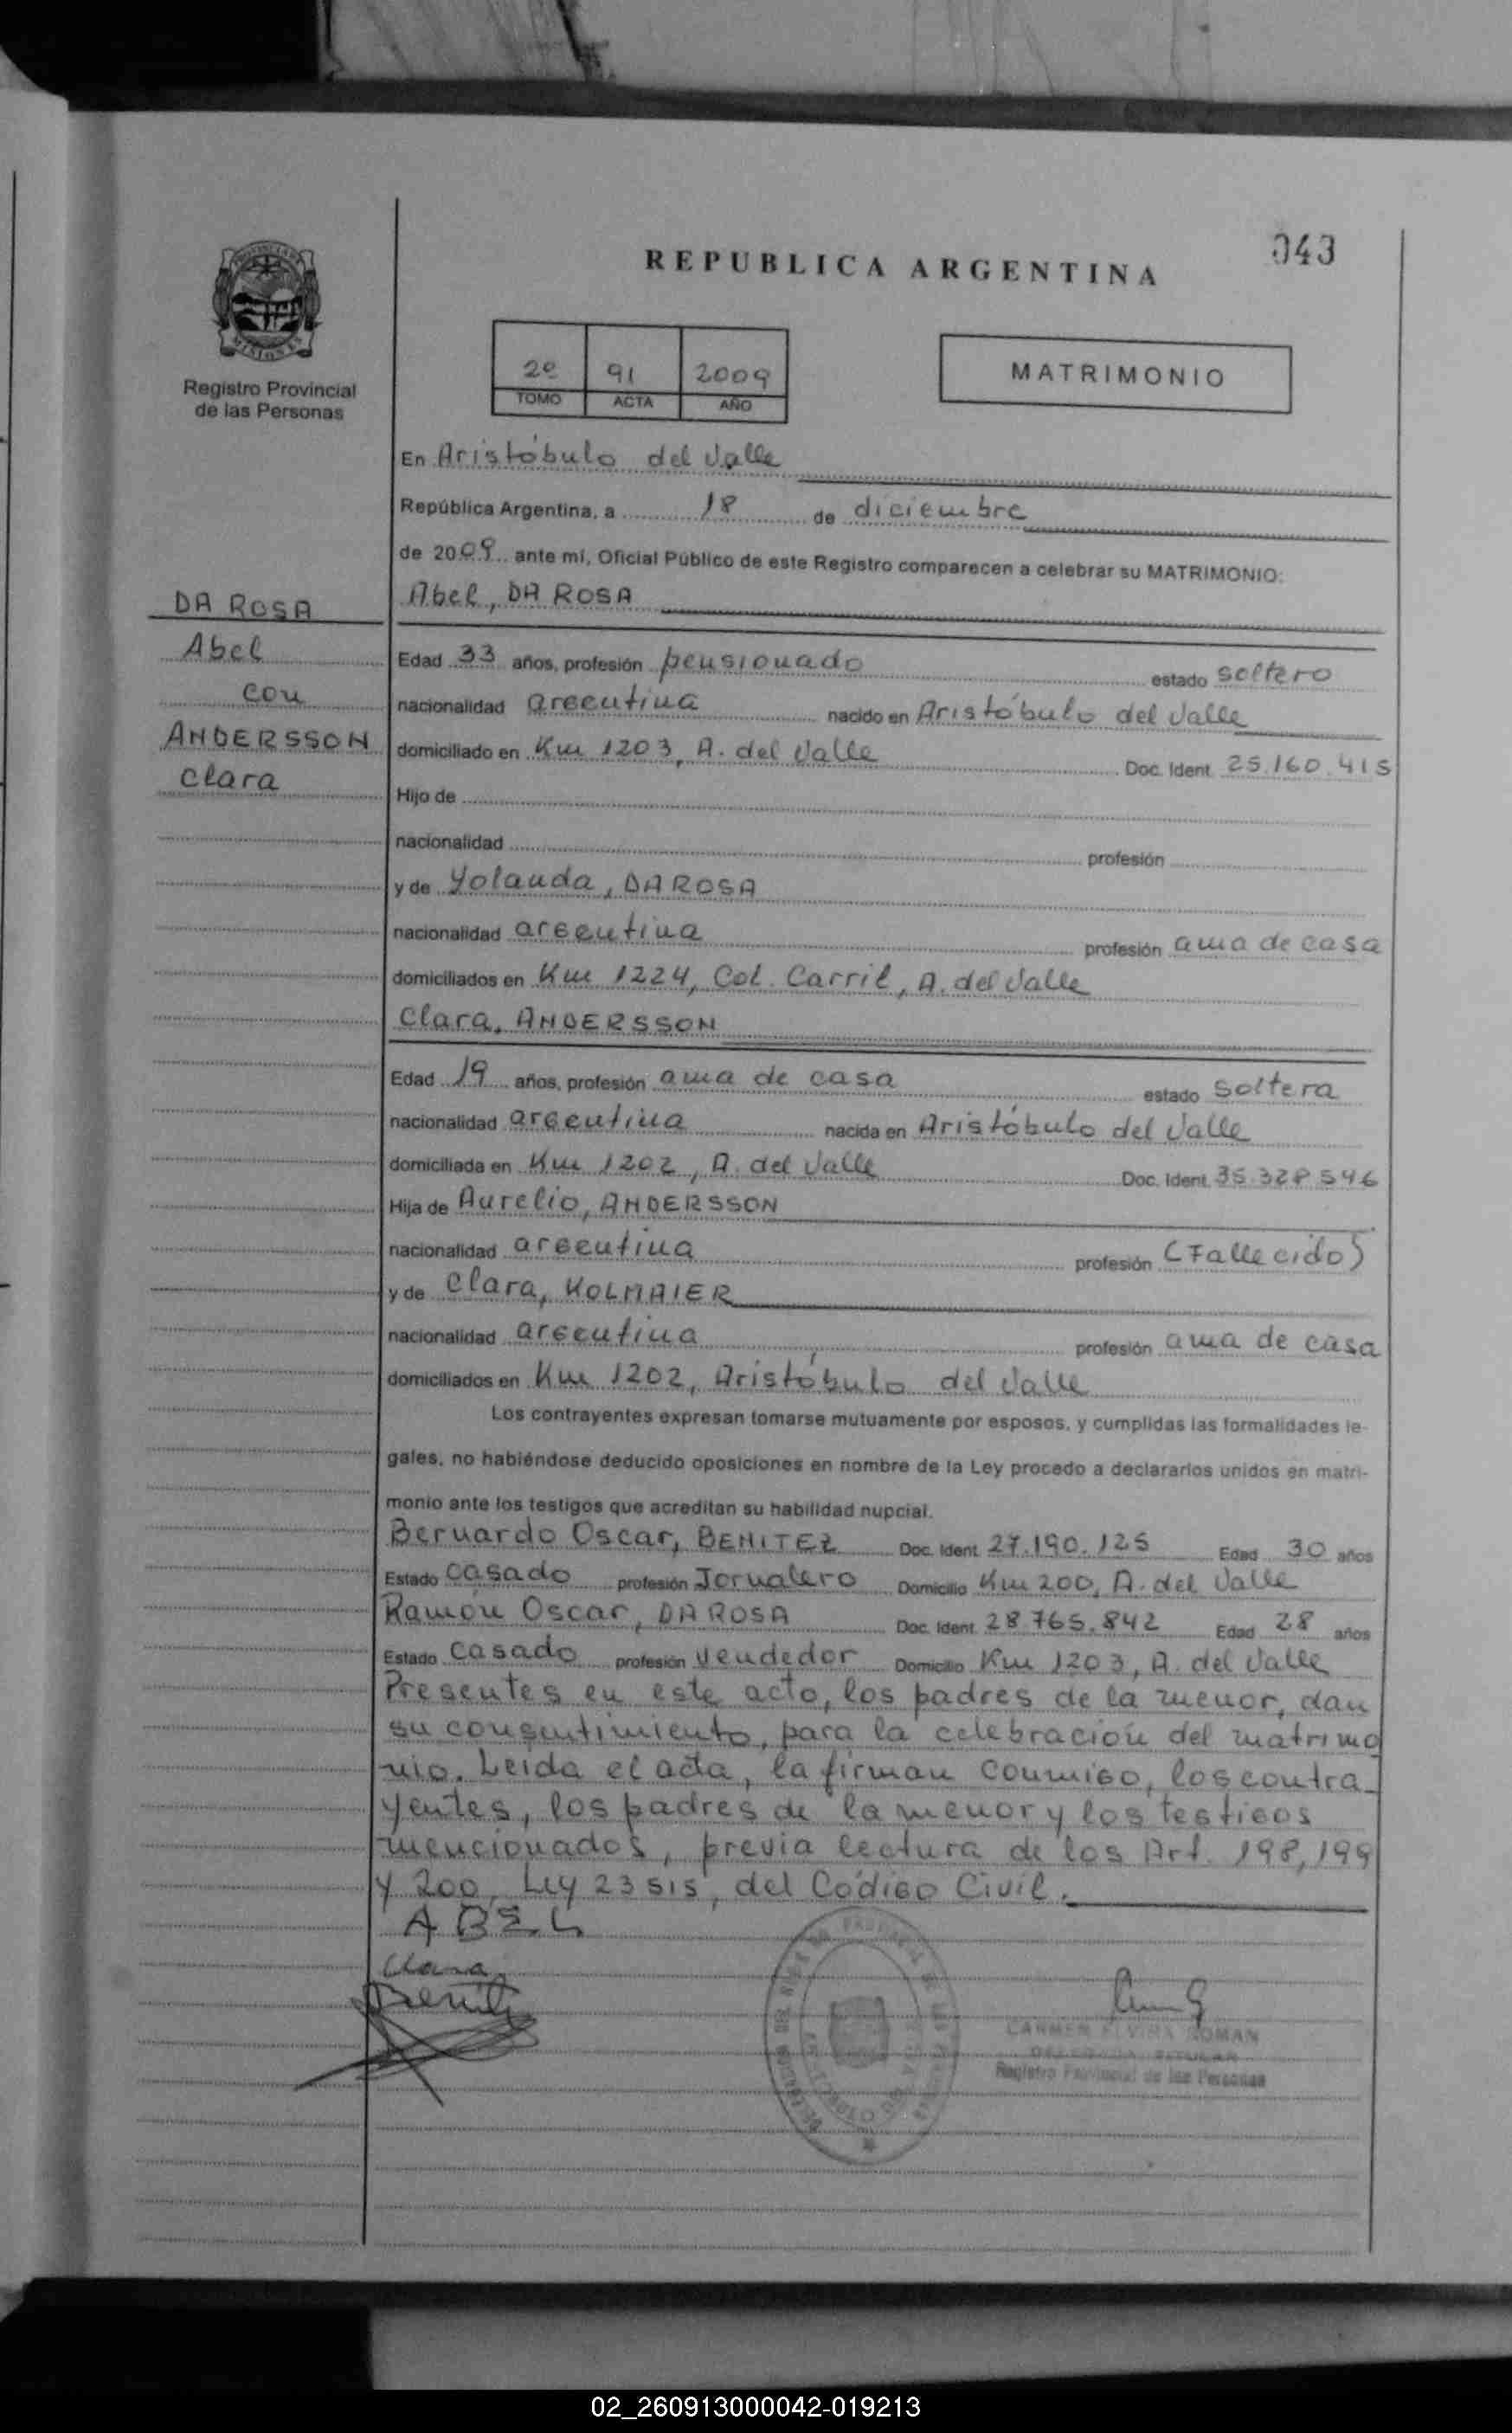 043
REPUBLICA ARGENTINA
MISIONES
Registro Provincial
de las Personas
2º 91 2009
TOMO ACTA AÑO
MATRIMONIO
En Aristóbulo del Valle
República Argentina, a 18 de diciembre
de 2009 ante mí, Oficial Público de este Registro comparecen a celebrar su MATRIMONIO:
DA ROSA
Abel
con
ANDERSSON
Clara
Abel, DA ROSA
Edad 33 años, profesión pensionado estado soltero
nacionalidad argentina nacido en Aristóbulo del Valle
domiciliado en Km 1203, A. del Valle Doc. Ident. 25.160.415
Hijo de
nacionalidad profesión
y de Yolanda, DA ROSA
nacionalidad argentina profesión ama de casa
domiciliados en Km 1224, Col. Carril, A. del Valle
Clara, ANDERSSON
Edad 19 años, profesión ama de casa estado soltera
nacionalidad argentina nacida en Aristóbulo del Valle
domiciliada en Km 1202, A. del Valle Doc. Ident. 35.328.546
Hija de Aurelio, ANDERSSON
nacionalidad argentina profesión (Fallecido)
y de Clara, KOLMAIER
nacionalidad argentina profesión ama de casa
domiciliados en Km 1202, Aristóbulo del Valle
Los contrayentes expresan tomarse mutuamente por esposos, y cumplidas las formalidades le-
gales, no habiéndose deducido oposiciones en nombre de la Ley procedo a declararlos unidos en matri-
monio ante los testigos que acreditan su habilidad nupcial.
Bernardo Oscar, BENITEZ Doc. Ident. 27.190.125 Edad 30 años
Estado Casado profesión Jornalero Domicilio Km 200, A. del Valle
Ramón Oscar, DA ROSA Doc. Ident. 28.765.842 Edad 28 años
Estado Casado profesión Vendedor Domicilio Km 1203, A. del Valle
Presentes en este acto, los padres de la menor, dan
su consentimiento, para la celebración del matrimo
nio. Leída el acta, la firman conmigo, los contra-
yentes, los padres de la menor y los testigos
mencionados, previa lectura de los Art. 198, 199
y 200, Ley 23515, del Código Civil.
ABEL
Clara
CARMEN ELVIRA ROMAN
DELEGADA TITULAR
Registro Provincial de las Personas
02_260913000042-019213